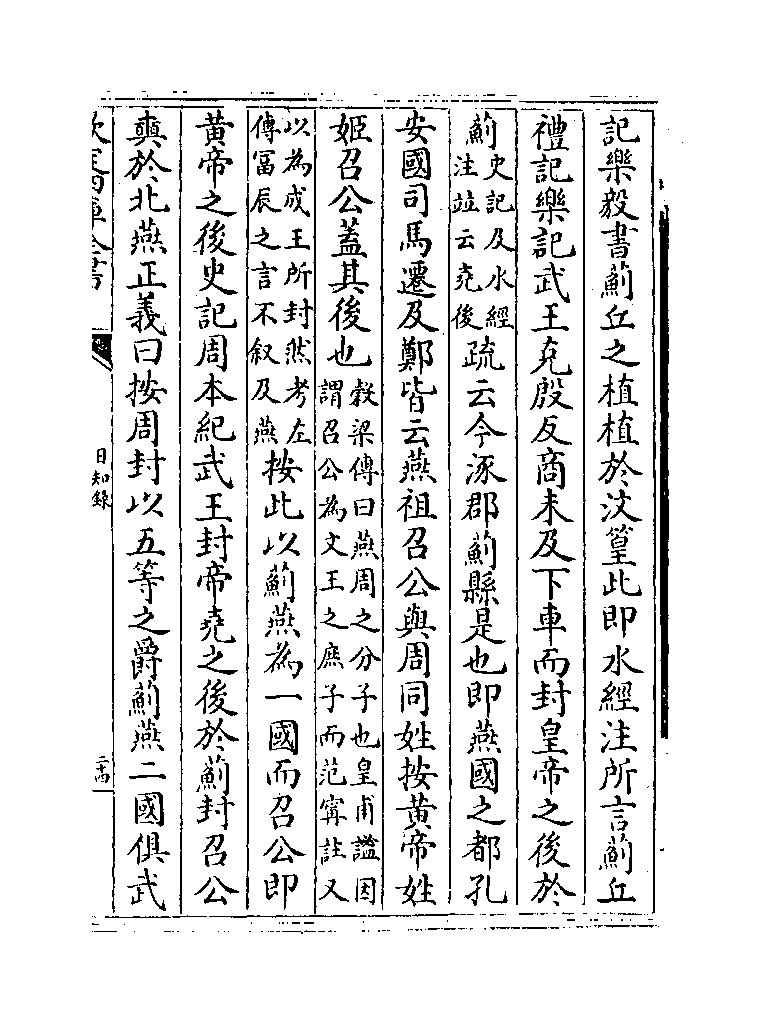 記樂毅書薊丘之植植於汶篁此即水經注所言薊丘
禮記樂記武王克殷反商未及下車而封皇帝之後於
薊史記及水經注竝云堯後疏云今涿郡薊縣是也即燕國之都孔
安國司馬遷及鄭皆云燕祖召公與周同姓按黃帝姓
姬召公蓋其後也穀梁傳曰燕周之分子也皇甫謐因謂召公為文王之庶子而范甯註又
以為成王所封然考左傳冨辰之言不叙及燕按此以薊燕為一國而召公即
黃帝之後史記周本紀武王封帝堯之後於薊封召公
奭於北燕正義曰按周封以五等之爵薊燕二國俱武
欽定四庫全書
日知錄
二十四